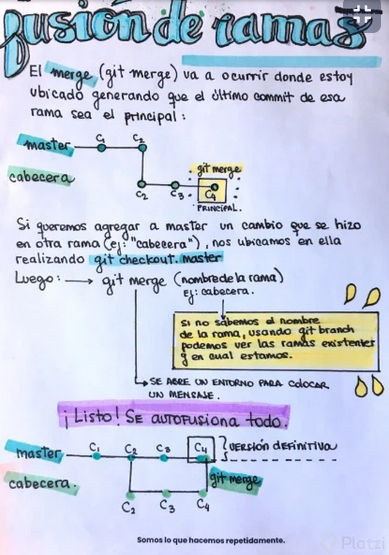 fusión de ramas
El merge (git merge) va a ocurrir donde estoy
ubicado generando que el último commit de esa
rama sea el principal:
master
C1
C2
git merge
cabecera
C2
C3
C4
PRINCIPAL.
Si queremos agregar a master un cambio que se hizo
en otra rama (ej: "cabecera"), nos ubicamos en ella
realizando git checkout. master
Luego: → git merge (nombre de la rama)
Ej: cabecera.
si no sabemos el nombre
de la rama, usando git branch
podemos ver las ramas existentes
y en cual estamos.
SE ABRE UN ENTORNO PARA COLOCAR
UN MENSAJE.
¡Listo! SE AUTOFUSIONA TODO.
master
C1
C2
C3
C4
VERSIÓN DEFINITIVA
cabecera.
git merge
C2
C3
C4
Somos lo que hacemos repetidamente.
Platzi